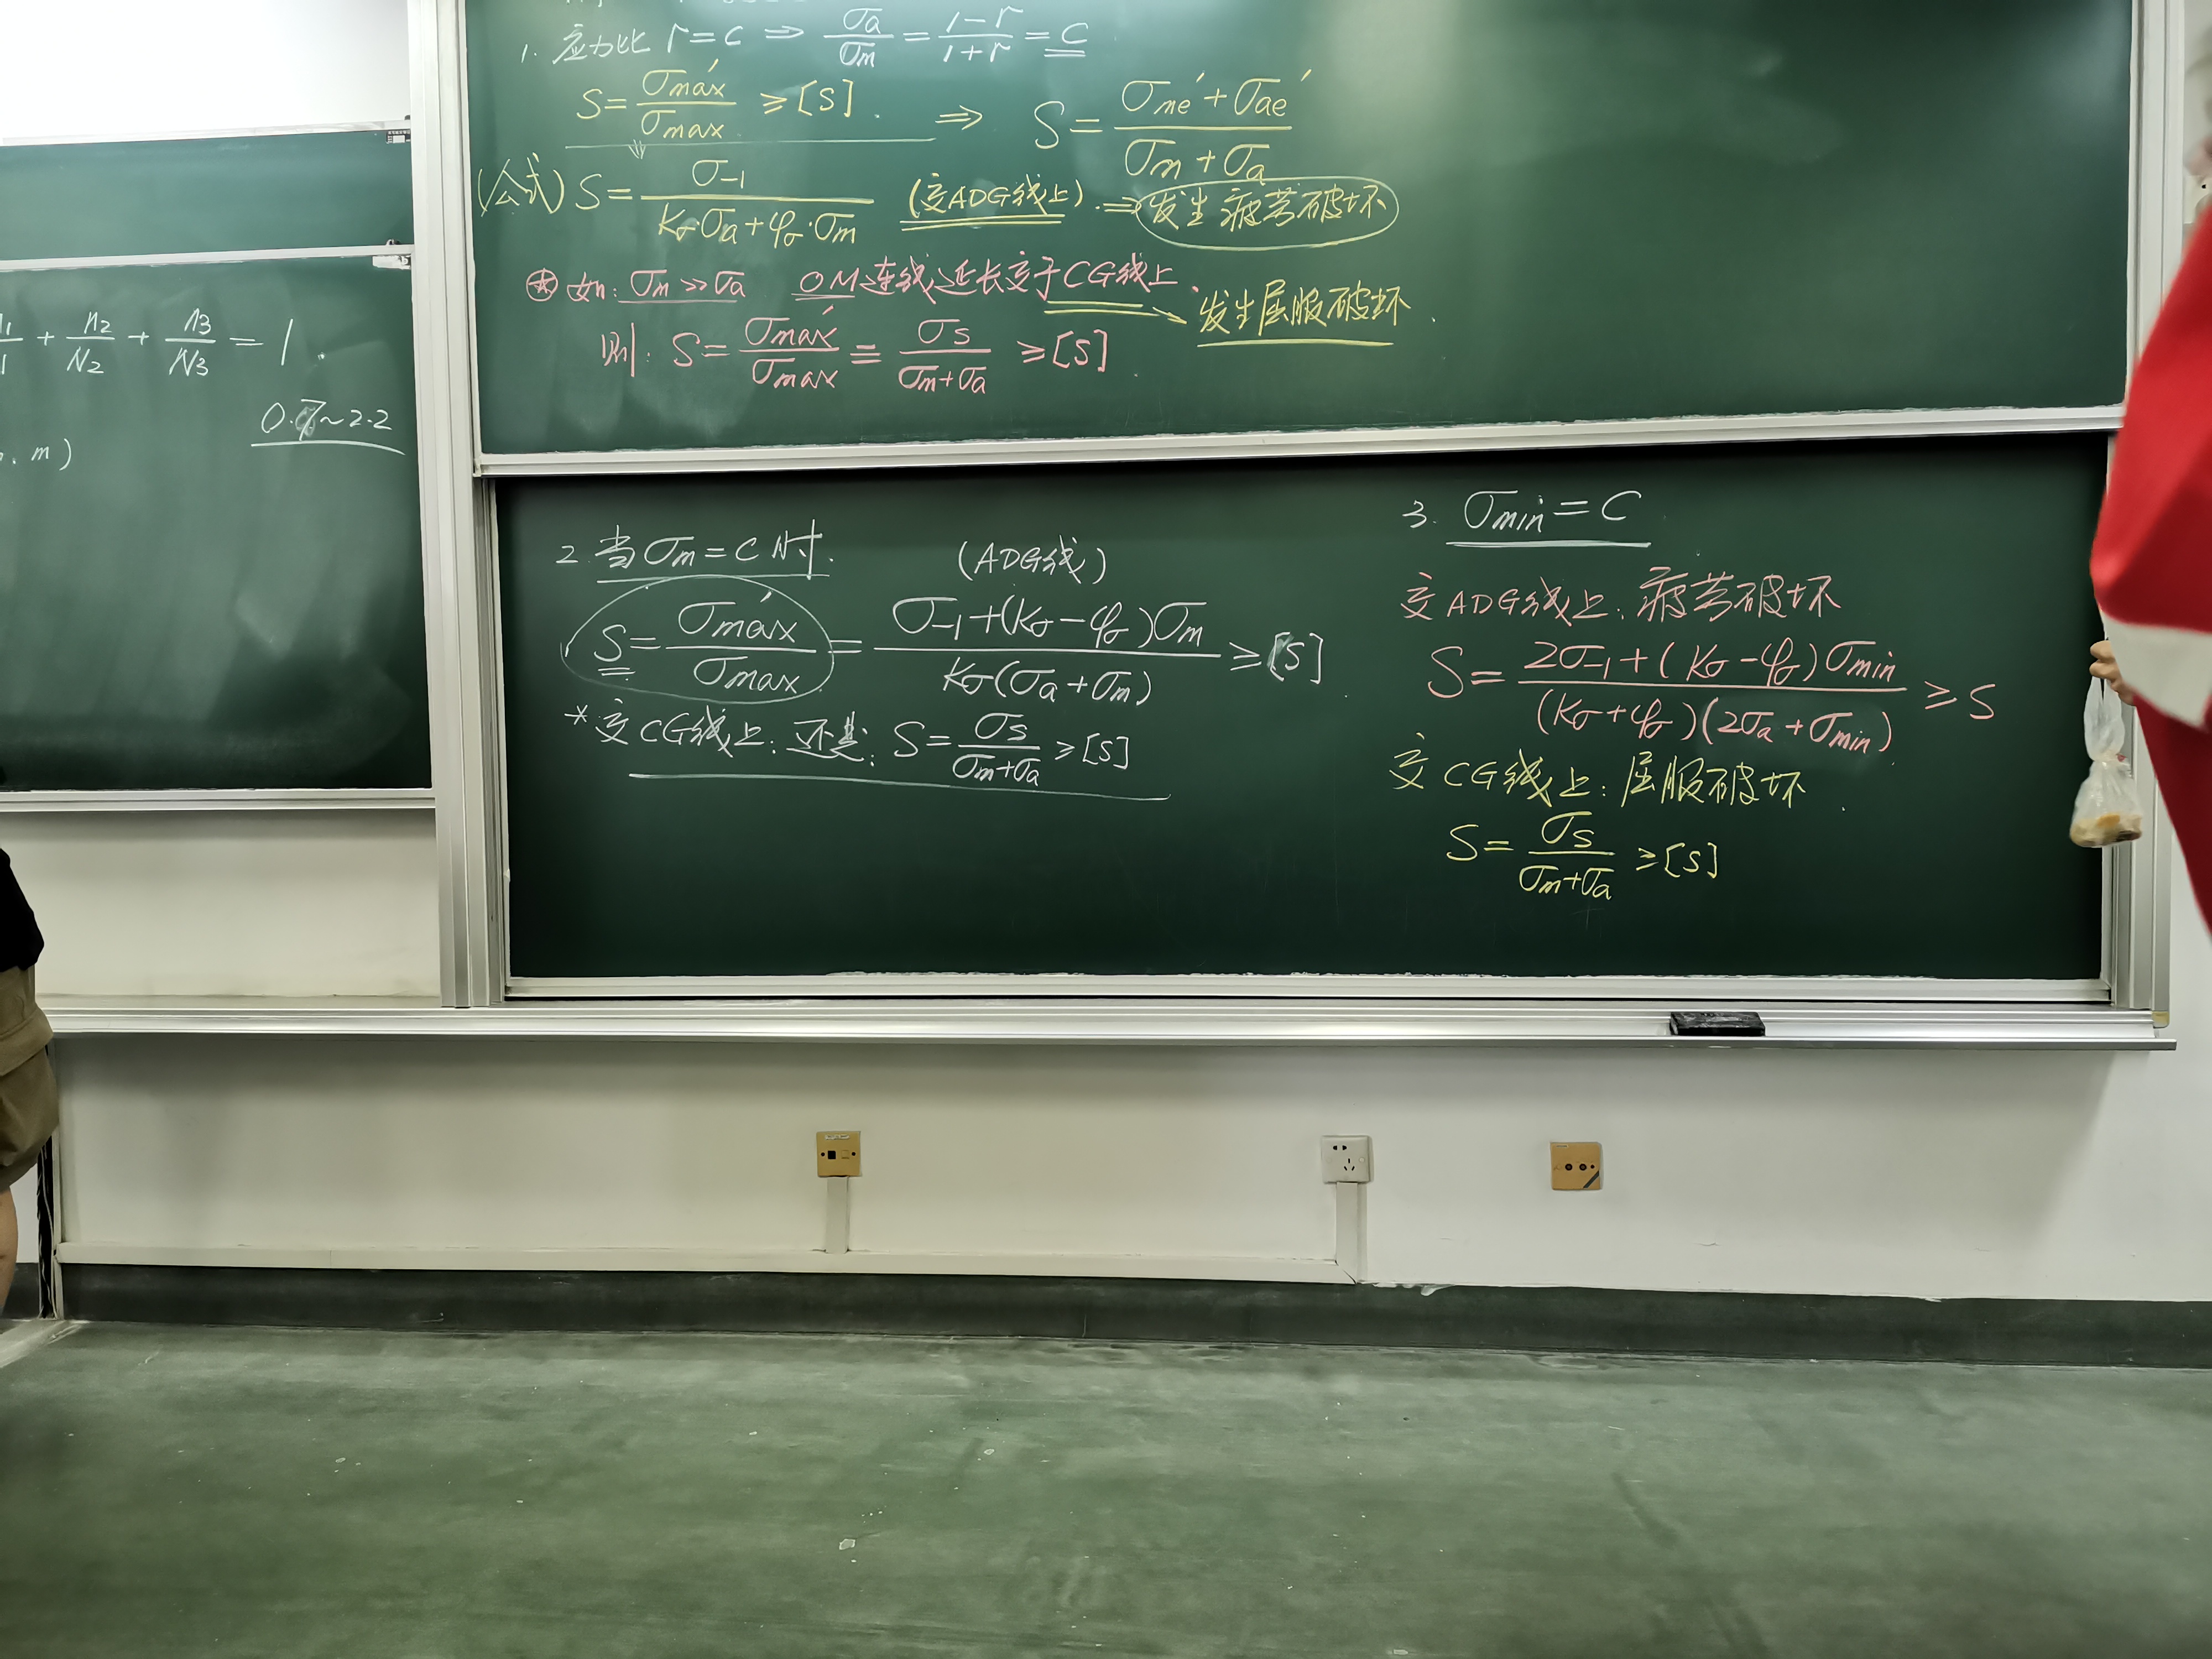 n₂/N₂ + n₃/N₃ = 1.
0.7~2.2
m)
1. 应力比 r=c ⇒ σa/σm = (1-r)/(1+r) = C
S = σmax′/σmax ≥ [S]. ⇒ S = (σme′+σae′)/(σm+σa)
(公式) S = σ-1/(Kσ·σa+φσ·σm) (交ADG线上). ⇒ 发生疲劳破坏
★ 如: σm≫σa OM连线延长交于CG线上. 发生屈服破坏.
则: S = σmax′/σmax = σs/(σm+σa) ≥ [S].
2. 当σm=C时. (ADG线)
S = σmax′/σmax = (σ-1+(Kσ-φσ)σm)/(Kσ(σa+σm)) ≥ [S].
* 交CG线上: 还是: S = σs/(σm+σa) ≥ [S]
3. σmin=C
交ADG线上: 疲劳破坏
S = (2σ-1+(Kσ-φσ)σmin)/((Kσ+φσ)(2σa+σmin)) ≥ S
交CG线上: 屈服破坏.
S = σs/(σm+σa) ≥ [S]